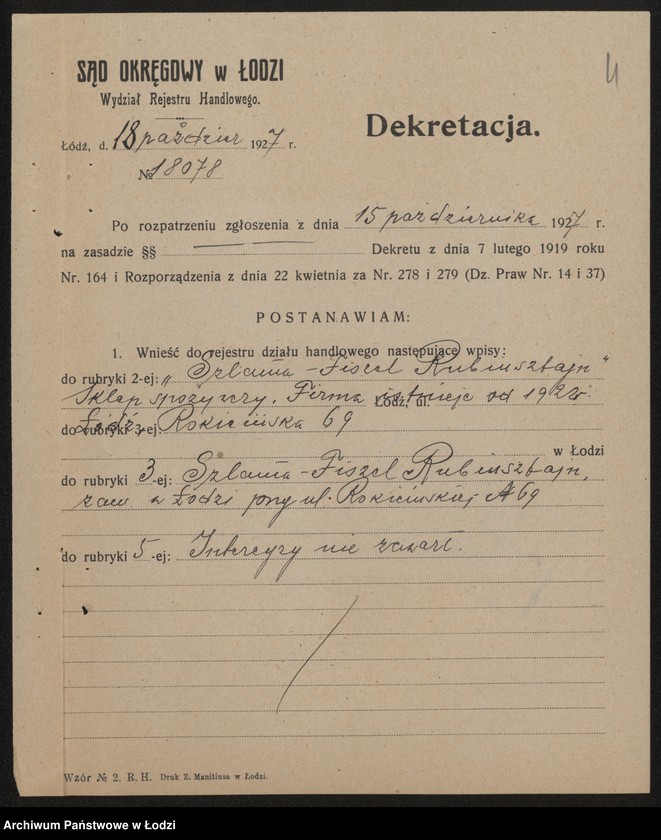 4
SĄD OKRĘGOWY w ŁODZI
Wydział Rejestru Handlowego.
Dekretacja.
Łódź, d. 18 paździer 1927 r.
№ 18078
Po rozpatrzeniu zgłoszenia z dnia 15 października 1927 r.
na zasadzie §§ Dekretu z dnia 7 lutego 1919 roku
Nr. 164 i Rozporządzenia z dnia 22 kwietnia za Nr. 278 i 279 (Dz. Praw Nr. 14 i 37)
POSTANAWIAM:
1. Wnieść do rejestru działu handlowego następujące wpisy:
do rubryki 2-ej: „Szlama-Fiszel Rubinsztajn"
Sklep spożywczy. Firma istnieje od r.
Łódź, ul.
Łódź, Rokicińska 69
do rubryki 3-ej:
w Łodzi
do rubryki 3-ej: Szlama-Fiszel Rubinsztajn,
zam. w Łodzi przy ul. Rokicińskiej № 69
do rubryki 5-ej: Intercyzy nie zawarł.
Wzór № 2. R. H. Druk Z. Manitiusa w Łodzi.
Archiwum Państwowe w Łodzi